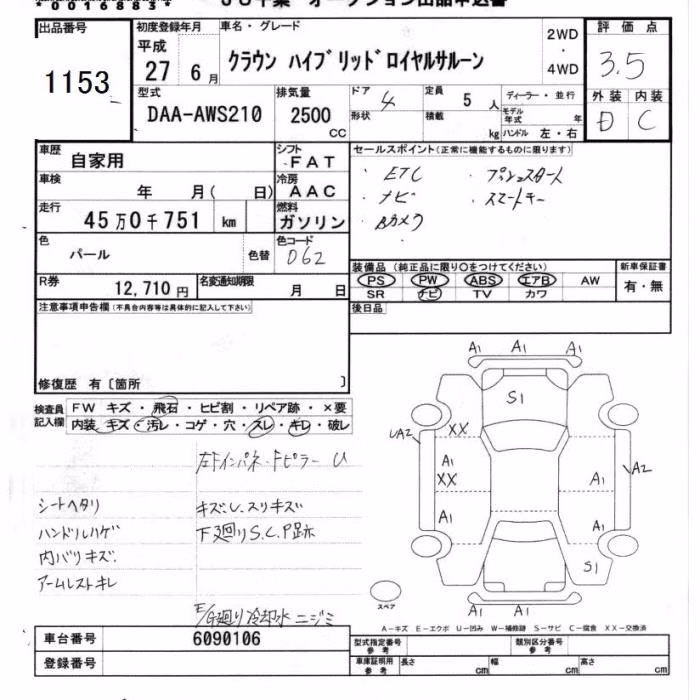 出品番号
1153
初度登録年月
平成
27 6月
車名・グレード
クラウン ハイブリッドロイヤルサルーン
2WD
・
4WD
評価点
3.5
外装 内装
D C
型式
DAA-AWS210
排気量
2500
CC
ドア 4
形状
定員 5 人
積載 kg
ディーラー・並行
モデル年式 年
ハンドル 左・右
車歴
自家用
シフト
FAT
車検
年 月( 日)
冷房
AAC
走行
45万0千751 km
燃料
ガソリン
色
パール
色替
色コード
062
R券
12,710円
名変通知期限
月 日
セールスポイント(正常に機能するものに限ります)
・ETC ・プッシュスタート
・ナビ ・スマートキー
・Bカメラ
・
装備品(純正品に限り○をつけてください)
PS PW ABS エアB AW
SR ナビ TV カワ
新車保証書
有・無
後日品
注意事項申告欄(不具合内容等は具体的に記入して下さい)
修復歴 有〔箇所 〕
検査員記入欄
FW キズ・飛石・ヒビ割・リペア跡・×要
内装 キズ・汚レ・コゲ・穴・スレ・キレ・破レ
左Fインパネ・Fピラー U
シートヘタリ
キズU.スリキズ
ハンドルハゲ
下廻りS.C.P跡
内バリキズ.
アームレストキレ
E/G廻り冷却水ニジミ
A1 A1 A1
S1
XX
UA2
A1
XX
A1
A2
A1
A1
S1
A1 A1 A1
スペア
A-キズ E-エクボ U-凹み W-補修跡 S-サビ C-腐食 XX-交換済
車台番号
6090106
登録番号
型式指定番号
参考
類別区分番号
参考
車庫証明用
参考
長さ cm
幅 cm
高さ cm